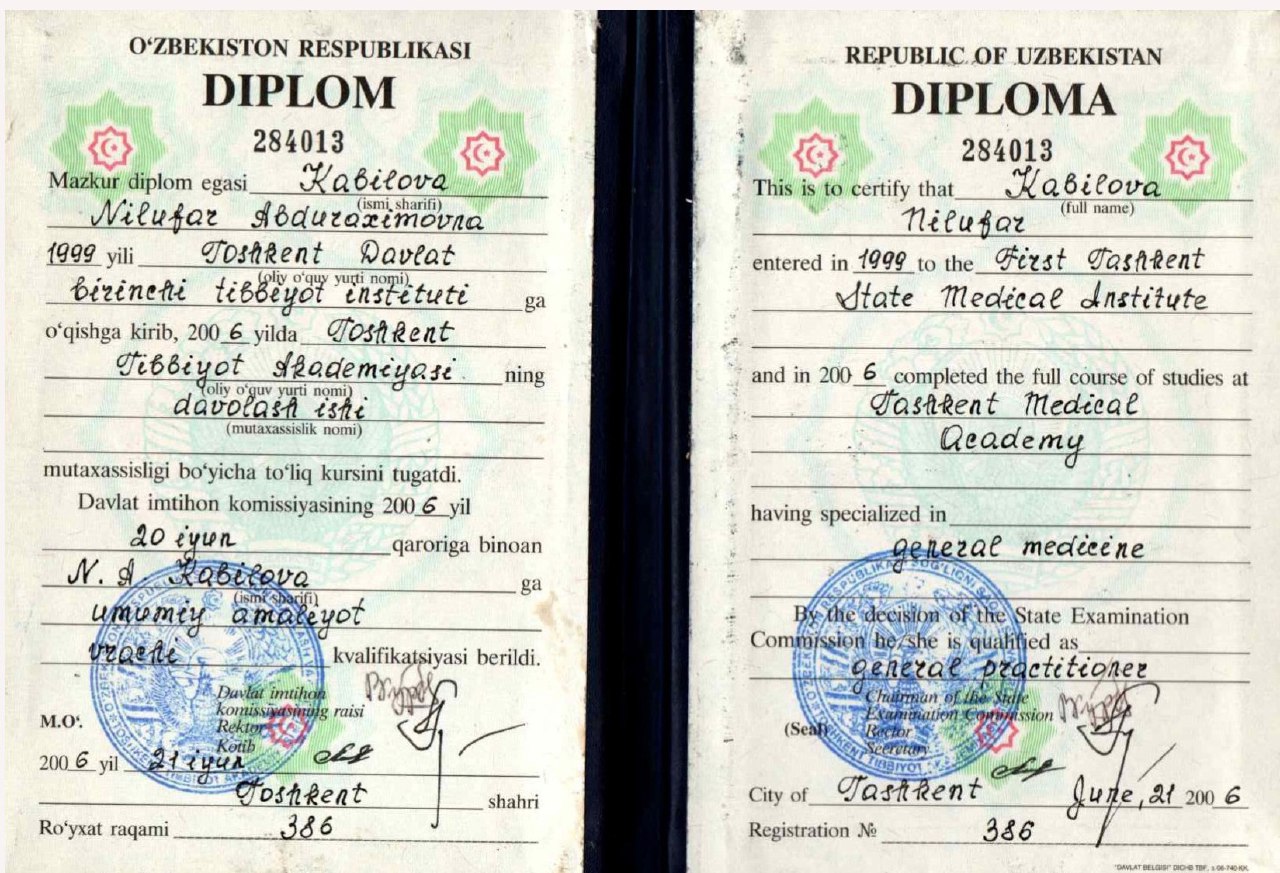 O‘ZBEKISTON RESPUBLIKASI
DIPLOM
284013
Mazkur diplom egasi Kabilova
(ismi sharifi)
Nilufar Abduraximovna
1999 yili Toshkent Davlat
(oliy o‘quv yurti nomi)
birinchi tibbiyot instituti ga
o‘qishga kirib, 2006 yilda Toshkent
Tibbiyot Akademiyasi ning
(oliy o‘quv yurti nomi)
davolash ishi
(mutaxassislik nomi)
mutaxassisligi bo‘yicha to‘liq kursini tugatdi.
Davlat imtihon komissiyasining 2006 yil
20 iyun qaroriga binoan
N. A. Kabilova ga
(ismi sharifi)
umumiy amaliyot
vrachi kvalifikatsiyasi berildi.
Davlat imtihon
komissiyasining raisi
M.O‘.
Rektor
Kotib
2006 yil 21 iyun
Toshkent shahri
Ro‘yxat raqami 386
REPUBLIC OF UZBEKISTAN
DIPLOMA
284013
This is to certify that Kabilova
(full name)
Nilufar
entered in 1999 to the First Tashkent
State Medical Institute
and in 2006 completed the full course of studies at
Tashkent Medical
Academy
having specialized in
general medicine
By the decision of the State Examination
Commission he/she is qualified as
general practitioner
Chairman of the State
Examination Commission
(Seal)
Rector
Secretary
City of Tashkent June, 21 2006
Registration № 386